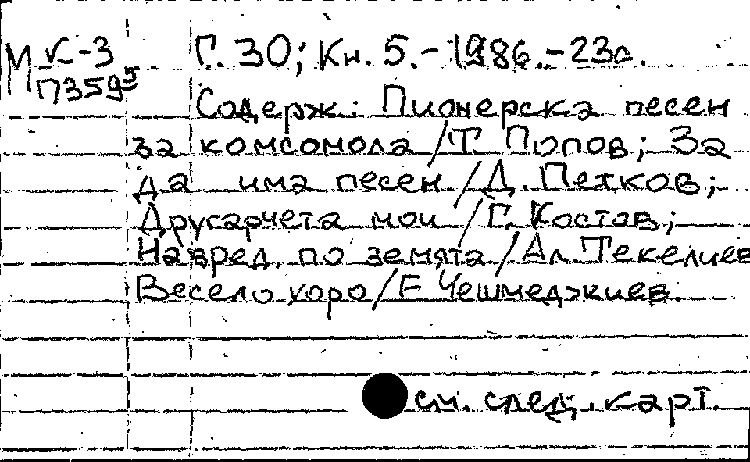 М К-3
П3595
Г. 30; Кн. 5.-1986.-23с.
Содерж.: Пионерска песен
за комсомола/Т. Попов; За
да има песен/Д. Петков;
Другарчета мои/Г. Костов;
Навред по земята/Ал. Текелиев
Весело хоро/Е. Чешмеджиев.
см. след. карт.